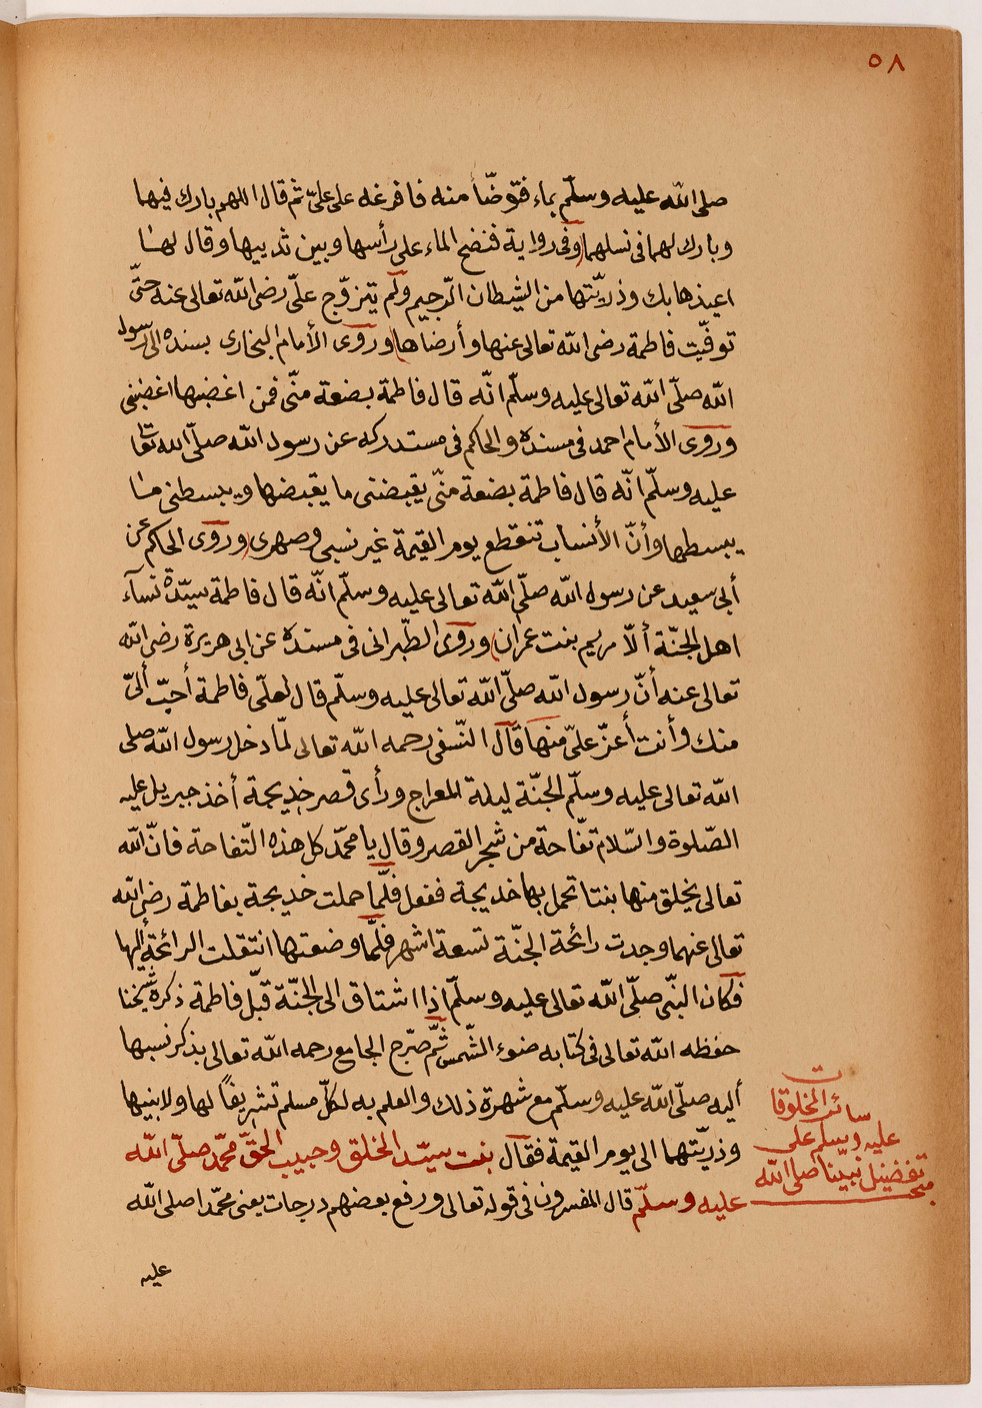 ٥٨
صلى الله عليه وسلّم بماء فتوضّأ منه فافرغه على علىّ ثم قال اللهم بارك فيهما
وبارك لهما فى نسلهما وفى رواية فنضح الماء على رأسها وبين ثدييها وقال لهنا
اعيذها بك وذريّتها من الشيطان الرّجيم ولم يتزوّج علىّ رضى الله تعالى عنه حتّى
توفّيت فاطمة رضى الله تعالى عنها وأرضاها وروى الأمام البخارى بسنده الى رسول
الله صلّى الله تعالى عليه وسلّم انّه قال فاطمة بضعة منّى فمن اغضبها اغضبنى
وروى الأمام احمد فى مسنده والحاكم فى مستدركه عن رسول الله صلّى الله تعالى
عليه وسلّم انّه قال فاطمة بضعة منّى يقبضنى ما يقبضها ويبسطنى ما
يبسطها وأنّ الأنساب تنقطع يوم القيمة غير نسبى وصهرى وروى الحاكم عن
أبى سعيد عن رسول الله صلّى الله تعالى عليه وسلّم انّه قال فاطمة سيّدة نسآء
اهل الجنّة ألاّ مريم بنت عمران وروى الطّبرانى فى مسنده عن ابى هريرة رضى الله
تعالى عنه أنّ رسول الله صلّى الله تعالى عليه وسلّم قال لعلّى فاطمة أحبّ ألىّ
منك وأنت أعزّ علىّ منها قال النّسفى رحمه الله تعالى لمّا دخل رسول الله صلى
الله تعالى عليه وسلّم الجنّة ليلة المعراج ورأى قصر خديجة أخذ جبريل عليه
الصّلوة والسّلام تفّاحة من شجر القصر وقال يا محمّد كل هذه التّفاحة فانّ الله
تعالى يخلق منها بنتا تحمل بها خديجة ففعل فلّما حملت خديجة بفاطمة رضى الله
تعالى عنهما وجدت رائحة الجنّة تسعة اشهر فلمّا وضعتها انتقلت الرائحة أليها
فكان النبّى صلّى الله تعالى عليه وسلّم اذا اشتاق الى الجنّة قبّل فاطمة ذكره شيخنا
حفظه الله تعالى فى كتابه ضوء الشّمس ثمّ صرّح الجامع رحمه الله تعالى بذكر نسبها
أليه صلّى الله عليه وسلّم مع شهرة ذلك والعلم به لكلّ مسلم تشريفاً لها ولابنيها
وذريّتهما الى يوم القيمة فقال بنت سيّد الخلق وحبيب الحقّ محمّد صلّى الله
عليه وسلّم قال المفسرون فى قوله تعالى ورفع بعضهم درجات يعنى محمّدا صلى الله
عليه
تفضيل نبيّنا صلى الله
عليه وسلم على
سائر المخلوقات